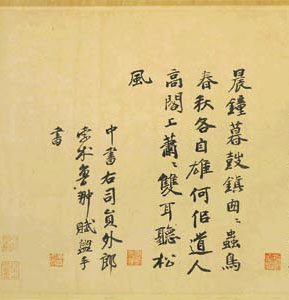 晨鐘暮鼓鎮匆〻蟲鳥
春秋各自雄何似道人
高閣上蕭〻雙耳聽松
風
中書右司員外郎
賦盥手
書